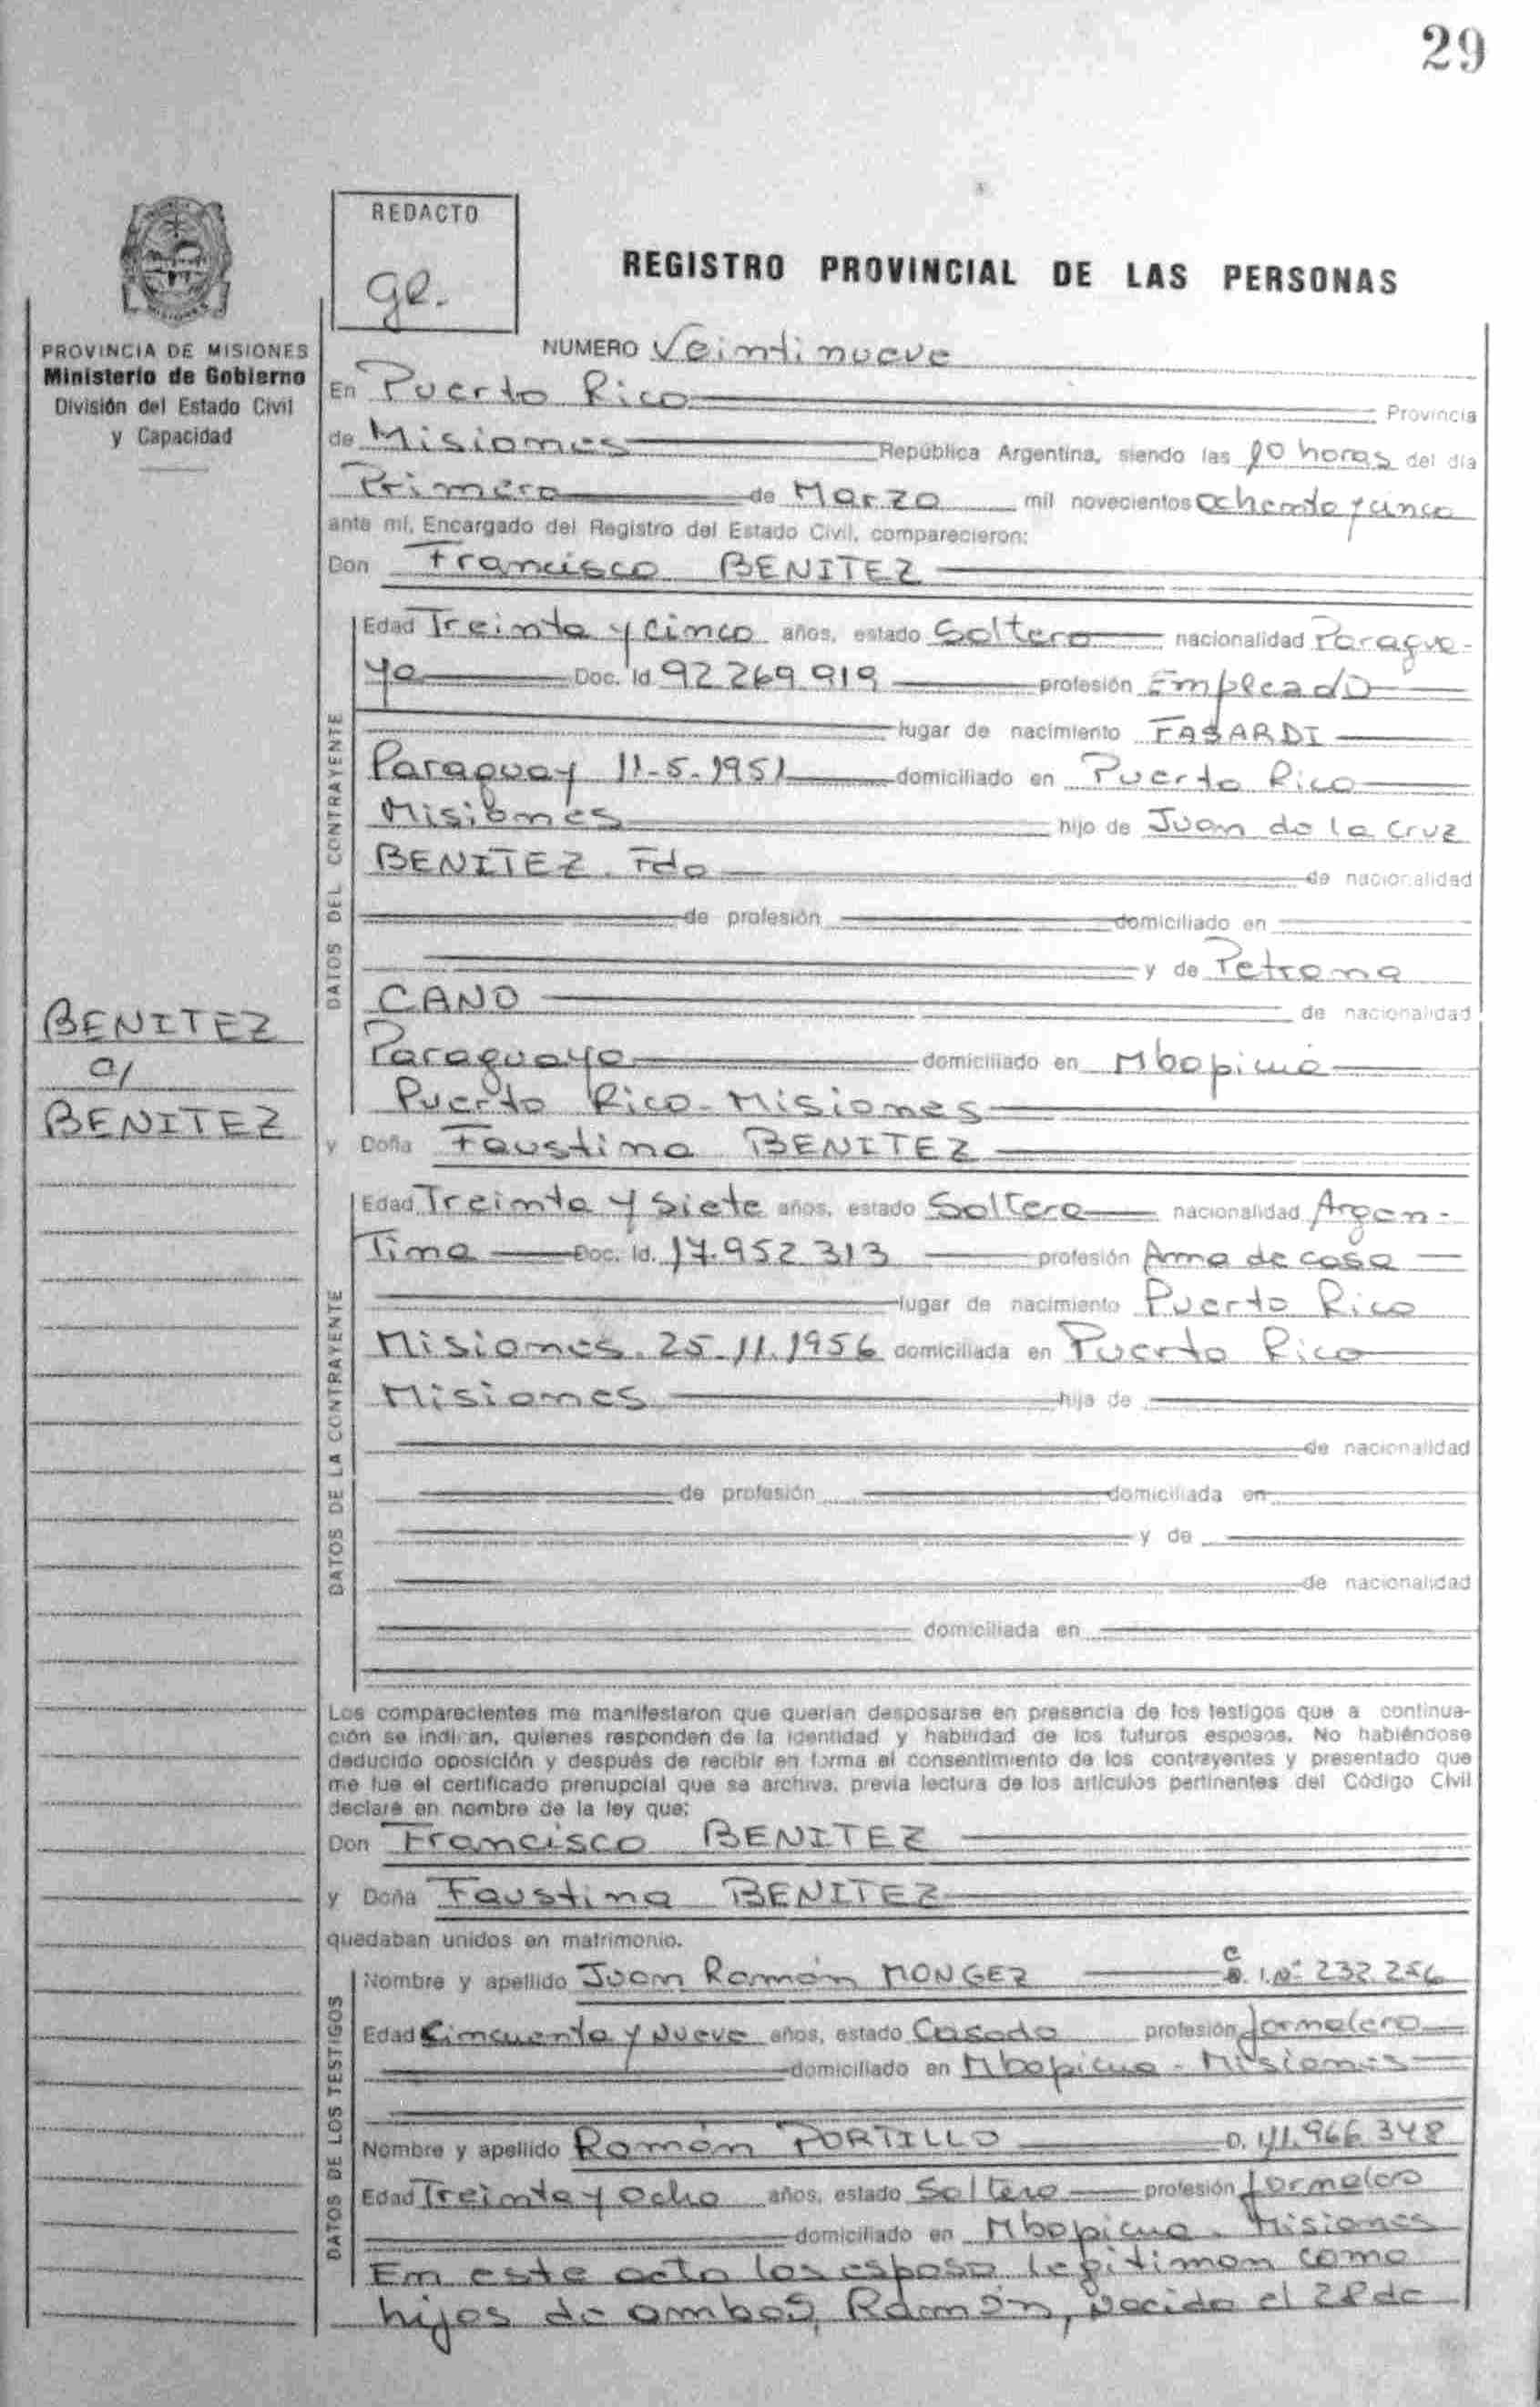 29
REDACTO
ge.
REGISTRO PROVINCIAL DE LAS PERSONAS
PROVINCIA DE MISIONES
Ministerio de Gobierno
División del Estado Civil
y Capacidad
NUMERO Veintinueve
En Puerto Rico Provincia
de Misiones República Argentina, siendo las 10 horas del día
Primero de Marzo mil novecientos ochenta y cinco
ante mí, Encargado del Registro del Estado Civil, comparecieron:
Don Francisco BENITEZ
DATOS DEL CONTRAYENTE
Edad Treinta y cinco años, estado Soltero nacionalidad Paragua-
ya Doc. Id 92 269 919 profesión Empleado
lugar de nacimiento FASARDI
Paraguay 11-5-1951 domiciliado en Puerto Rico
Misiones hijo de Juan de la Cruz
BENITEZ. Fdo de nacionalidad
de profesión domiciliado en
y de Petrona
CANO de nacionalidad
Paraguaya domiciliado en Mbopicuá
Puerto Rico - Misiones
BENITEZ
c/
BENITEZ
y Doña Faustina BENITEZ
DATOS DE LA CONTRAYENTE
Edad Treinta y Siete años, estado Soltera nacionalidad Argen-
Tina Doc. Id. 17.952 313 profesión Ama de casa
lugar de nacimiento Puerto Rico
Misiones. 25.11.1956 domiciliada en Puerto Rico
Misiones hija de
de nacionalidad
de profesión domiciliada en
y de
de nacionalidad
domiciliada en
Los comparecientes me manifestaron que querían desposarse en presencia de los testigos que a continua-
ción se indican, quienes responden de la identidad y habilidad de los futuros esposos. No habiéndose
deducido oposición y después de recibir en forma el consentimiento de los contrayentes y presentado que
me fue el certificado prenupcial que se archiva, previa lectura de los artículos pertinentes del Código Civil
declaré en nombre de la ley que:
Don Francisco BENITEZ
y Doña Faustina BENITEZ
quedaban unidos en matrimonio.
DATOS DE LOS TESTIGOS
Nombre y apellido Juan Ramón MONGEZ C. I. Nº 232.256
Edad Cincuenta y Nueve años, estado Casado profesión Jornalero
domiciliado en Mbopicua - Misiones
Nombre y apellido Ramón PORTILLO D. 11.966.348
Edad Treinta y Ocho años, estado Soltero profesión Jornalero
domiciliado en Mbopicua. Misiones
En este acto los esposo legitiman como
hijos de ambos, Ramón, nacido el 28 de